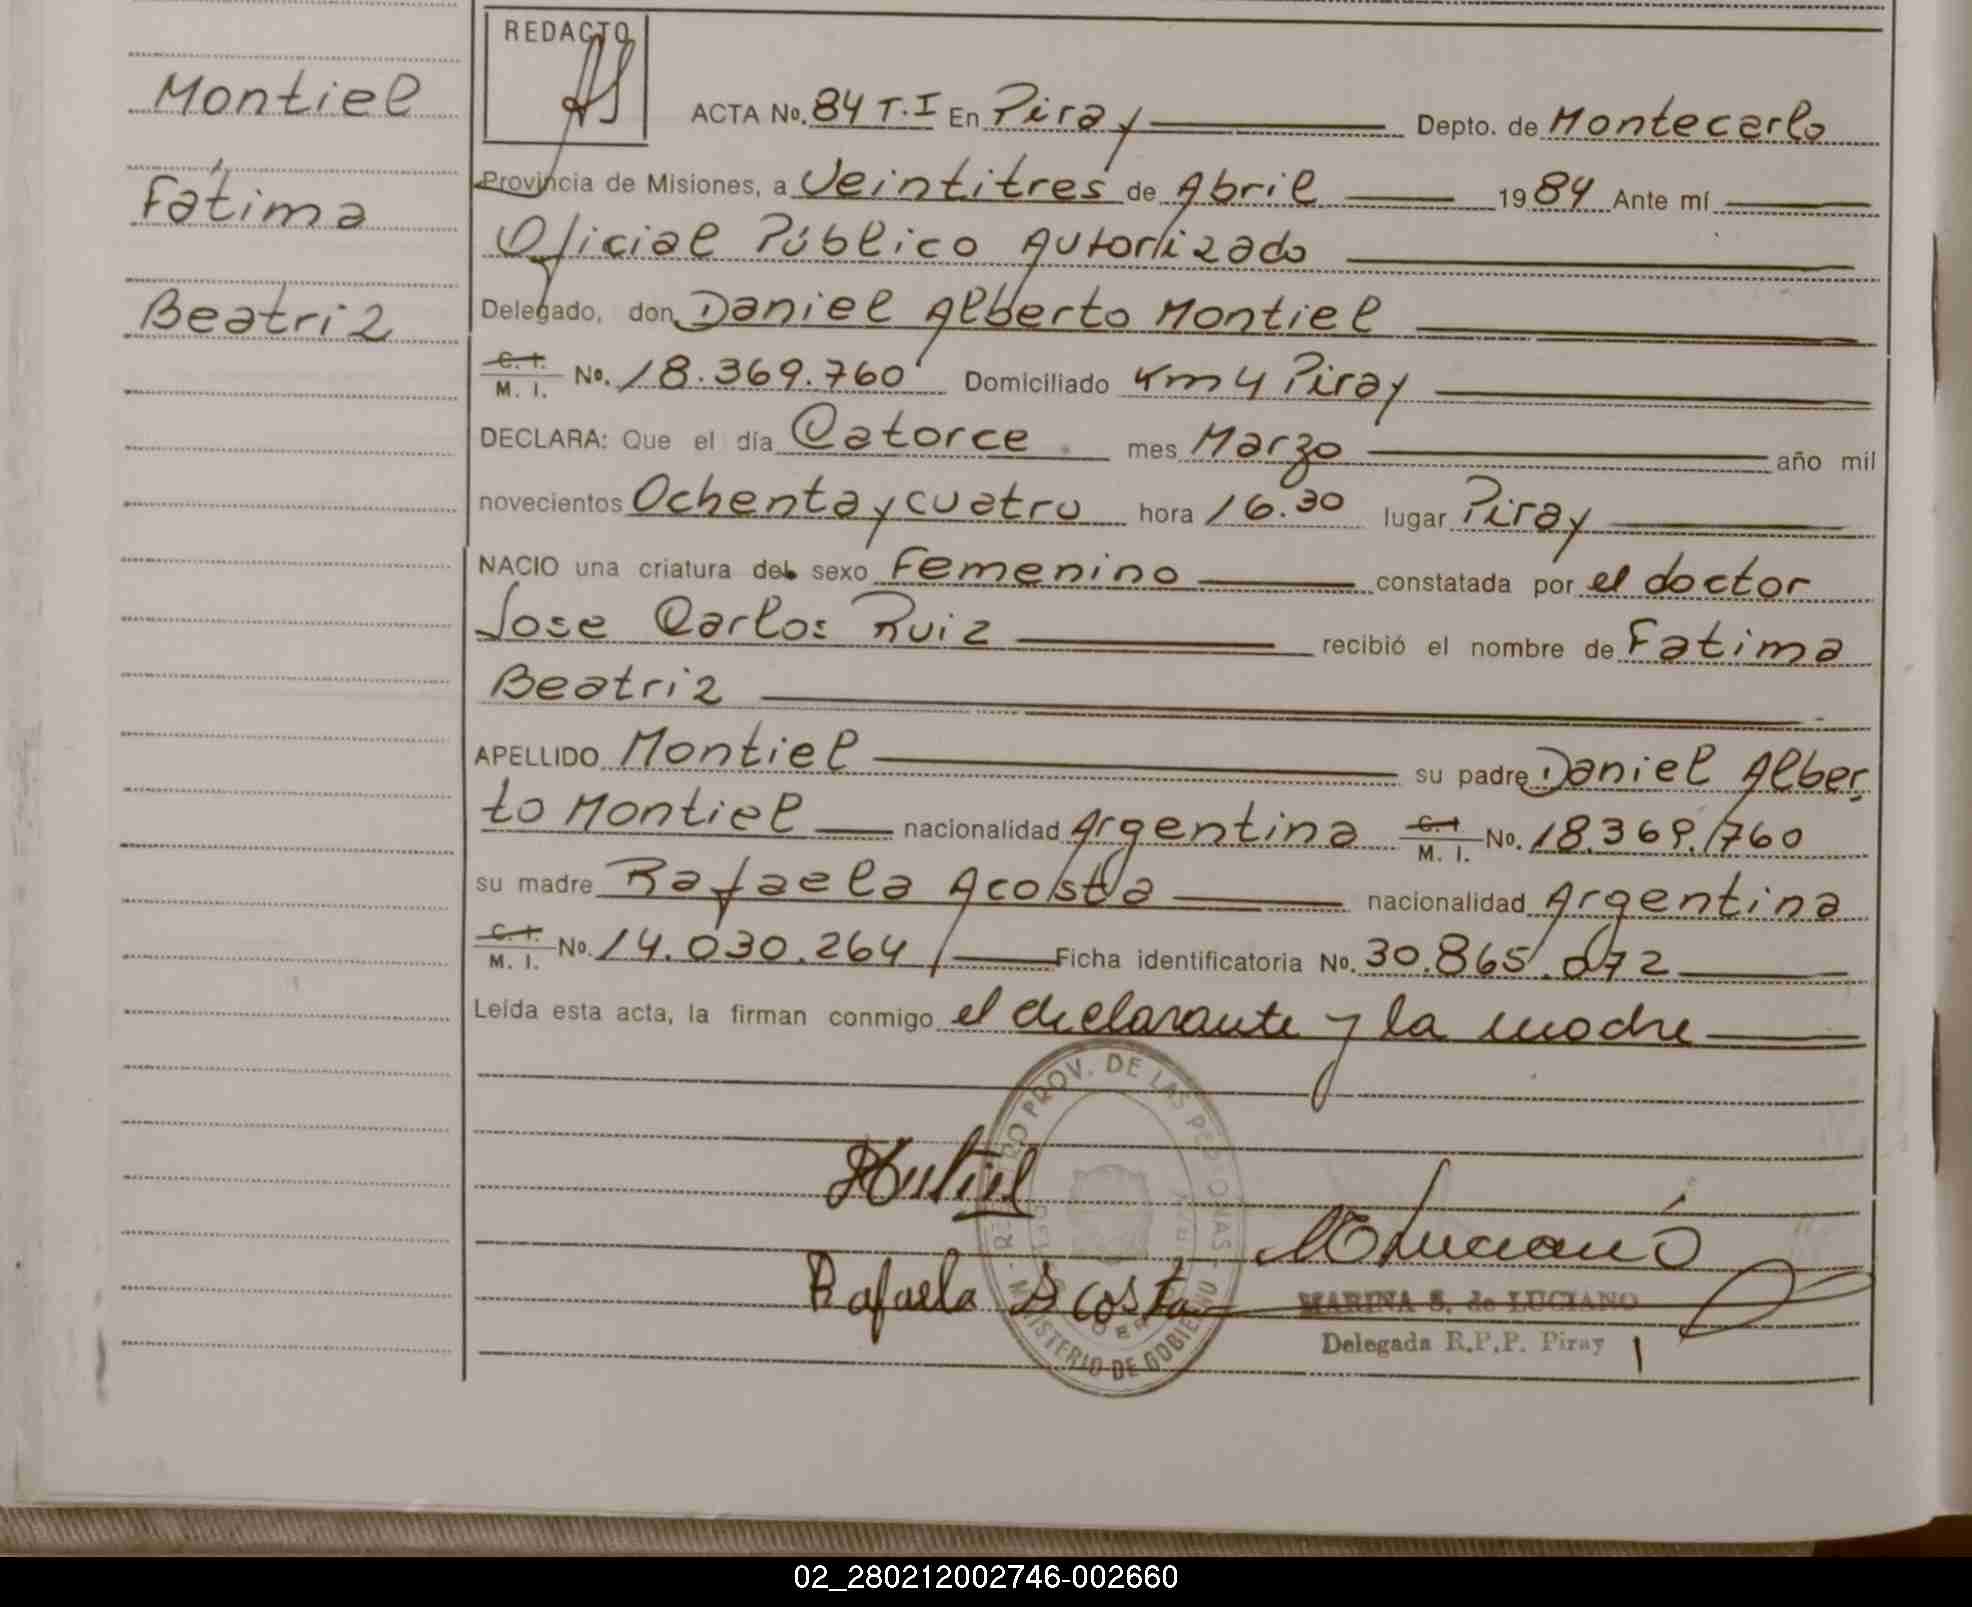 Montiel
Fátima
Beatriz
REDACTO
ACTA No. 84 T.I En Piray Depto. de Montecarlo
Provincia de Misiones, a Veintitres de Abril 1984 Ante mí
Oficial Público Autorizado
Delegado, don Daniel Alberto Montiel
C. I. M. I. No. 18.369.760 Domiciliado Km 4 Piray
DECLARA: Que el día Catorce mes Marzo año mil
novecientos Ochenta y cuatro hora 16.30 lugar Piray
NACIO una criatura del sexo Femenino constatada por el doctor
Jose Carlos Ruiz recibió el nombre de Fatima
Beatriz
APELLIDO Montiel su padre Daniel Alber
to Montiel nacionalidad Argentina C. I. M. I. No. 18.369.760
su madre Rafaela Acosta nacionalidad Argentina
C. I. M. I. No. 14.030.264 Ficha identificatoria No. 30.865.072
Leída esta acta, la firman conmigo el declarante y la madre
REGISTRO PROV. DE LAS PERSONAS
MINISTERIO DE GOBIERNO
Montiel
Rafaela Acosta
MARINA S. de LUCIANO
Delegada R.P.P. Piray
02_280212002746-002660